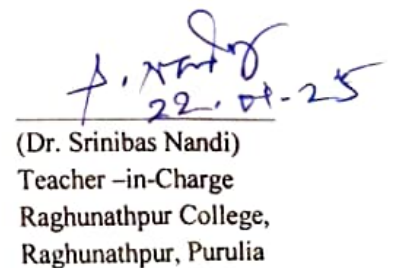 22.01-25
(Dr. Srinibas Nandi)
Teacher –in-Charge
Raghunathpur College,
Raghunathpur, Purulia